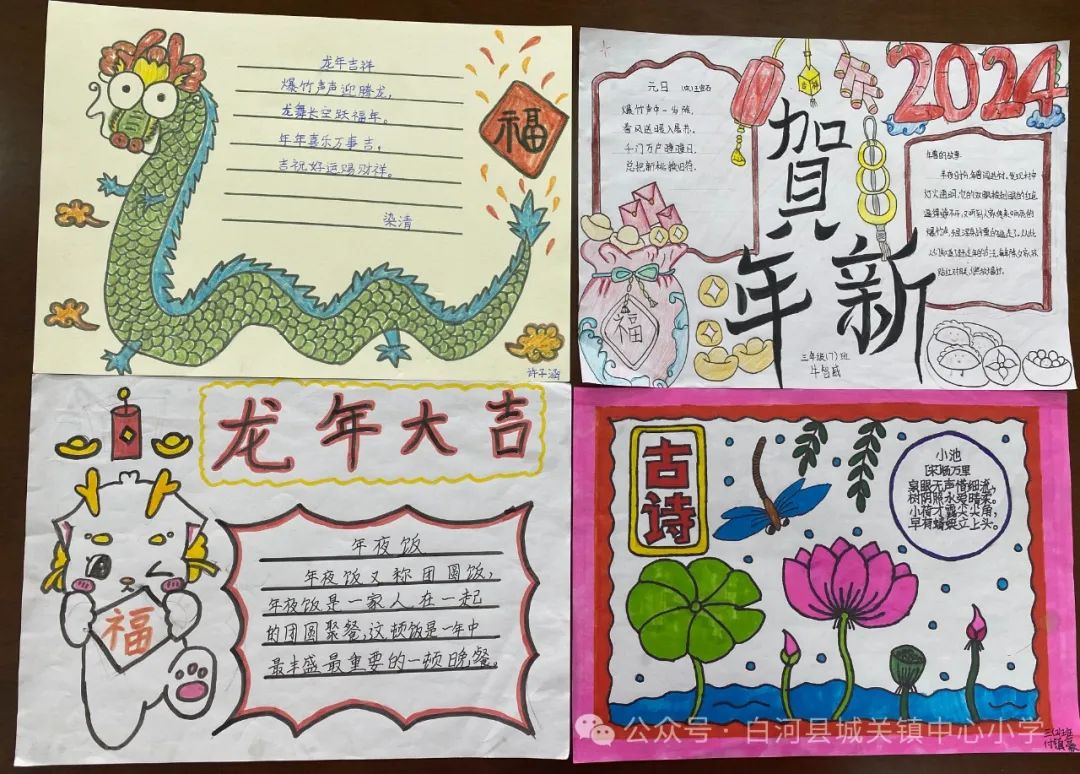 龙年吉祥
爆竹声声迎腾龙，
龙舞长空跃福年。
年年喜乐万事吉，
吉祝好运赐财祥。
染清
福
许子涵
2024
賀
新
年
元日
爆竹声中一岁除，
春风送暖入屠苏。
千门万户曈曈日，
总把新桃换旧符。
年兽的故事
福
三年级(7)班
牛智威
龙年大吉
福
年夜饭
年夜饭又称团圆饭，
年夜饭是一家人在一起
的团圆聚餐，这顿饭是一年中
最丰盛最重要的一顿晚餐。
古诗
小池
[宋]杨万里
泉眼无声惜细流，
树阴照水爱晴柔。
小荷才露尖尖角，
早有蜻蜓立上头。
公众号·白河县城关镇中心小学